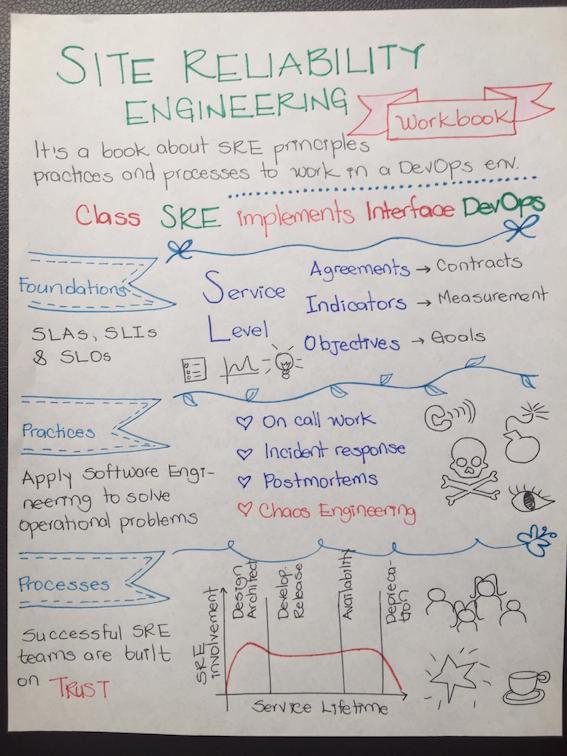 SITE RELIABILITY
ENGINEERING
Workbook
It is a book about SRE principles
practices and processes to work in a DevOps env.
Class SRE implements Interface DevOps
Foundations
SLAs, SLIs
& SLOs
Service
Level
Agreements → Contracts
Indicators → Measurement
Objectives → Goals
Practices
Apply Software Engi-
neering to solve
operational problems
♡ On call work
♡ Incident response
♡ Postmortems
♡ Chaos Engineering
Processes
Successful SRE
teams are built
on TRUST
SRE
involvement
Design
Architect
Develop.
Release
Availability
Depreca-
tion
Service Lifetime